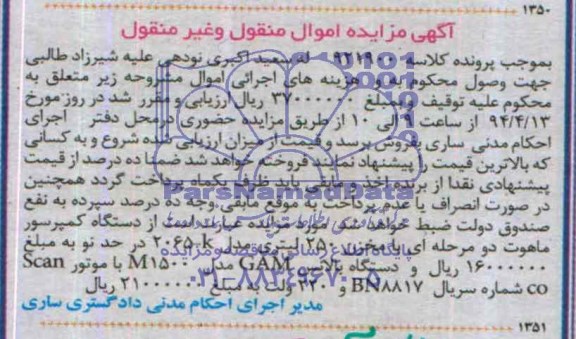 ۱۳۵۰
آگهی مزایده اموال منقول وغیر منقول
بموجب پرونده کلاسه ۹۲۱۹۰۰ له سعید اکبری نودهی علیه شیرزاد طالبی
جهت وصول محکوم به و هزینه های اجرائی اموال مشروحه زیر متعلق به
محکوم علیه توقیف و بمبلغ ۳۷۰۰۰۰۰۰ ریال ارزیابی و مقرر شد در روز مورخ
۹۴/۴/۱۳ از ساعت ۹ الی ۱۰ از طریق مزایده حضوری درمحل دفتر اجرای
احکام مدنی ساری بفروش برسد و قیمت از میزان ارزیابی شده شروع و به کسانی
که بالاترین قیمت را پیشنهاد نمایند فروخته خواهد شد ضمنا ده درصد از قیمت
پیشنهادی نقدا از برنده اخذ و مابقی باید ظرف یکماه پرداخت گردد همچنین
در صورت انصراف یا عدم پرداخت به موقع مابقی وجه ده درصد سپرده به نفع
صندوق دولت ضبط خواهد شد. اموال مزایده عبارت است از دستگاه کمپرسور
ماهوت دو مرحله ای با مخزن ۲۵۰ لیتری مدل ۲۰۶۵-k در حد نو به مبلغ
۱۶۰۰۰۰۰۰ ریال و دستگاه بالانس GAM مدل M۱۵۰۰ با موتور Scan
co شماره سریال BN۸۸۱۷ و ۲۲۰ ولت به مبلغ ۲۱۰۰۰۰۰۰ ریال
مدیر اجرای احکام مدنی دادگستری ساری
۱۳۵۱
ParsNamadData
پایگاه اطلاع رسانی مناقصه و مزایده